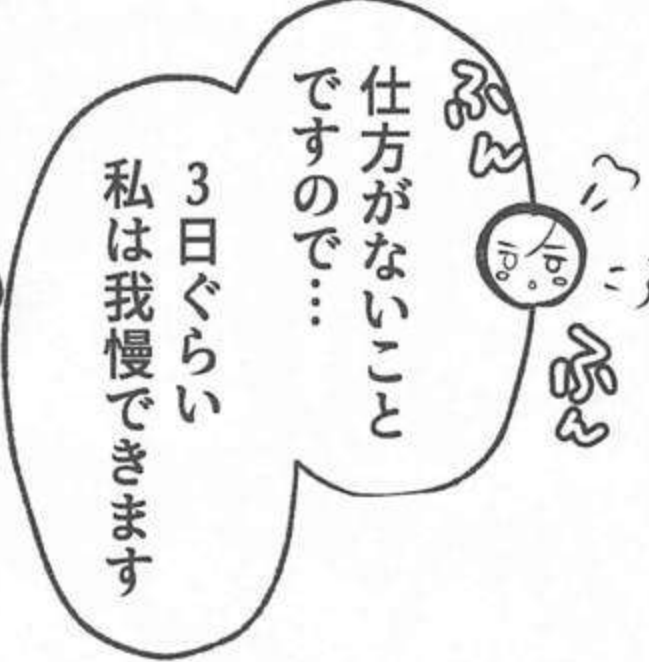 ふん
仕方がないこと
ですので…
3日ぐらい
私は我慢できます
ふん